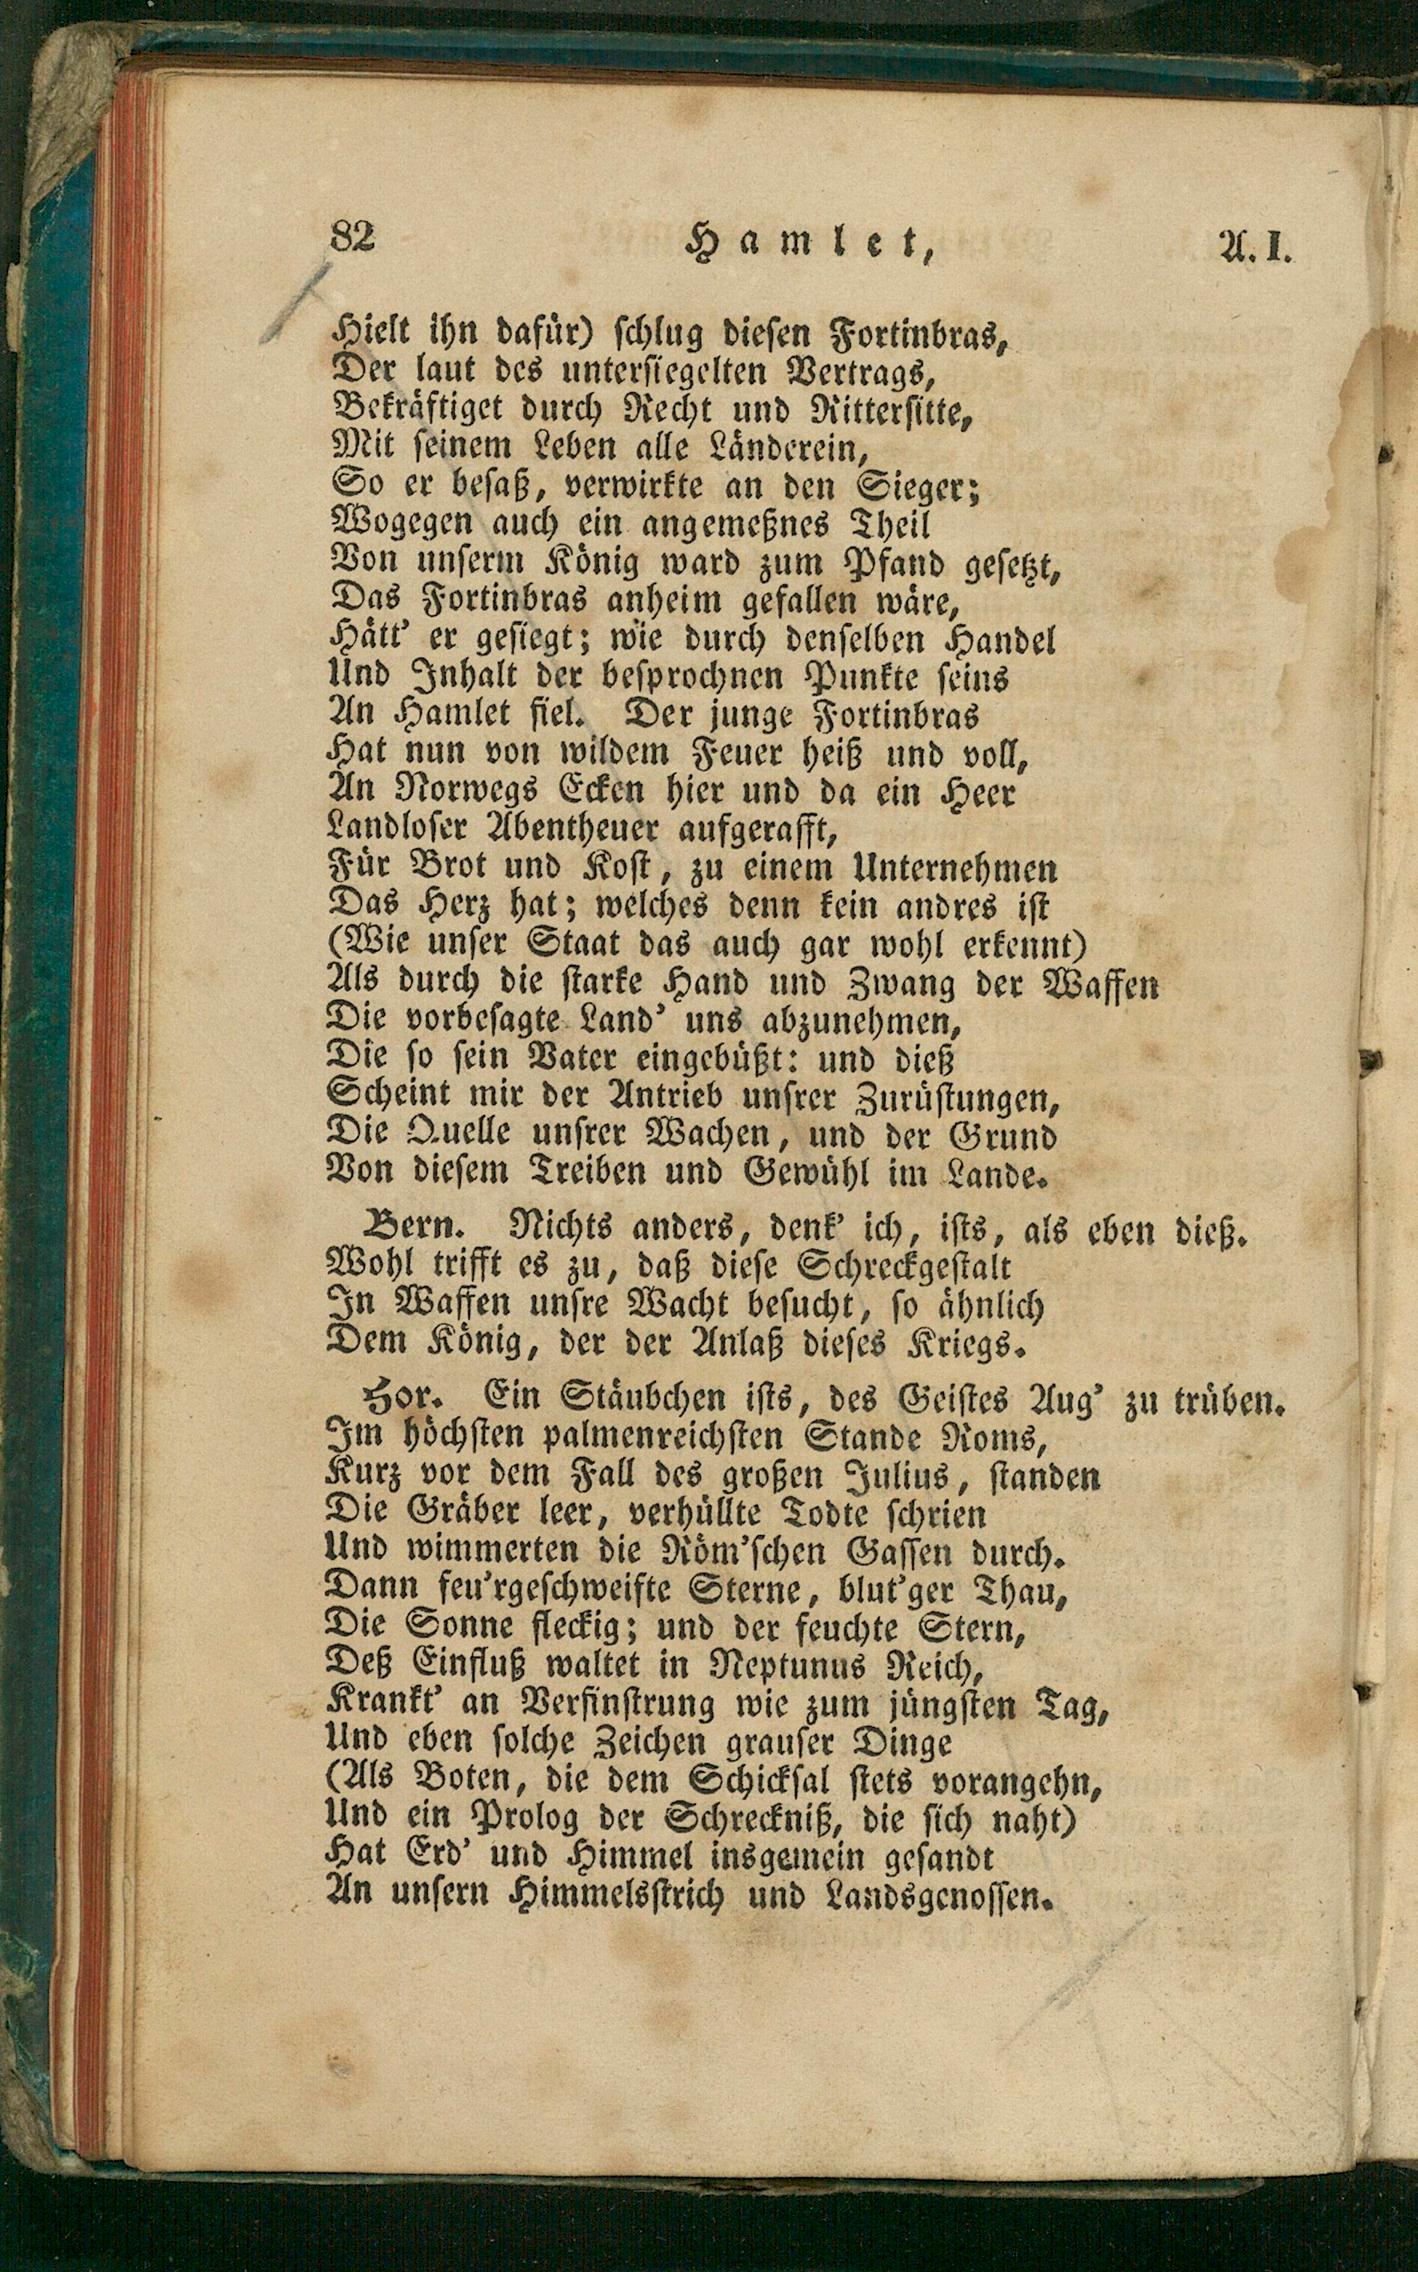 82 Hamlet, A. I.
Hielt ihn dafür) schlug diesen Fortinbras,
Der laut des untersiegelten Vertrags,
Bekräftiget durch Recht und Rittersitte,
Mit seinem Leben alle Länderein,
So er besaß, verwirkte an den Sieger;
Wogegen auch ein angemeßnes Theil
Von unserm König ward zum Pfand gesetzt,
Das Fortinbras anheim gefallen wäre,
Hätt' er gesiegt; wie durch denselben Handel
Und Inhalt der besprochnen Punkte seins
An Hamlet fiel. Der junge Fortinbras
Hat nun von wildem Feuer heiß und voll,
An Norwegs Ecken hier und da ein Heer
Landloser Abentheuer aufgerafft,
Für Brot und Kost, zu einem Unternehmen
Das Herz hat; welches denn kein andres ist
(Wie unser Staat das auch gar wohl erkennt)
Als durch die starke Hand und Zwang der Waffen
Die vorbesagte Land' uns abzunehmen,
Die so sein Vater eingebüßt: und dieß
Scheint mir der Antrieb unsrer Zurüstungen,
Die Quelle unsrer Wachen, und der Grund
Von diesem Treiben und Gewühl im Lande.
Bern. Nichts anders, denk' ich, ists, als eben dieß.
Wohl trifft es zu, daß diese Schreckgestalt
In Waffen unsre Wacht besucht, so ähnlich
Dem König, der der Anlaß dieses Kriegs.
Hor. Ein Stäubchen ists, des Geistes Aug' zu trüben.
Im höchsten palmenreichsten Stande Roms,
Kurz vor dem Fall des großen Julius, standen
Die Gräber leer, verhüllte Todte schrien
Und wimmerten die Röm'schen Gassen durch.
Dann feu'rgeschweifte Sterne, blut'ger Thau,
Die Sonne fleckig; und der feuchte Stern,
Deß Einfluß waltet in Neptunus Reich,
Krankt' an Verfinstrung wie zum jüngsten Tag,
Und eben solche Zeichen grauser Dinge
(Als Boten, die dem Schicksal stets vorangehn,
Und ein Prolog der Schreckniß, die sich naht)
Hat Erd' und Himmel insgemein gesandt
An unsern Himmelsstrich und Landsgenossen.